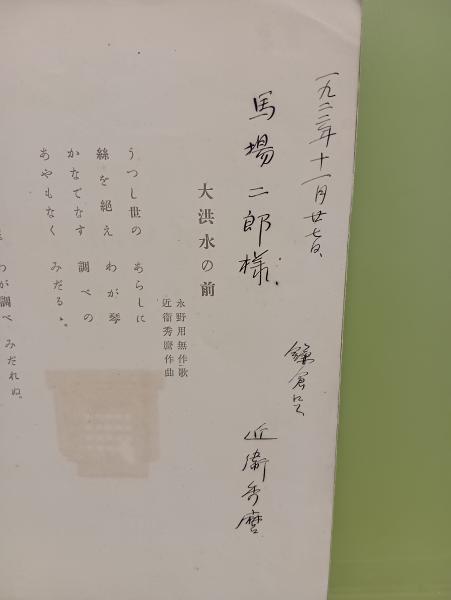 一九二二年十一月廿七日、
馬場二郎様
鎌倉にて
近衞秀麿
大洪水の前
永野用無作歌
近衞秀麿作曲
うつし世の　あらしに
絲を絶え　わが琴
かなでなす　調べの
あやもなく　みだるゝ。
わが調べ　みだれぬ。